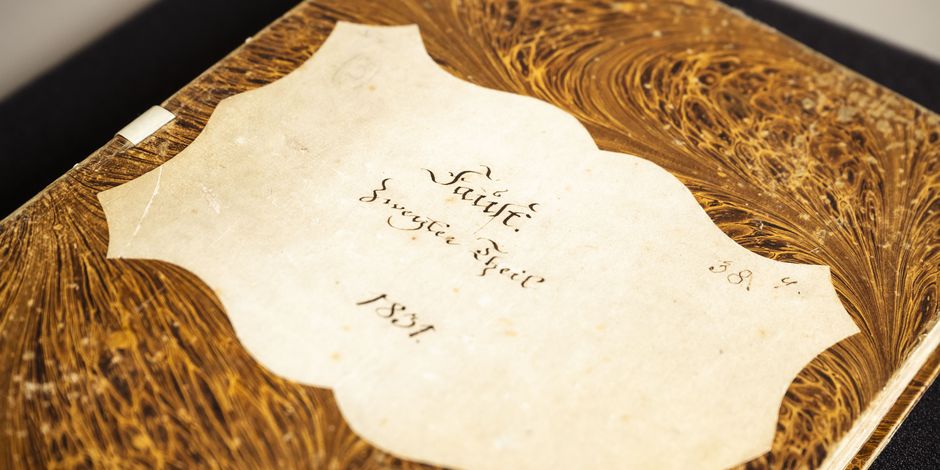 Faust.
Zweyter Theil
1831.
38. 4.